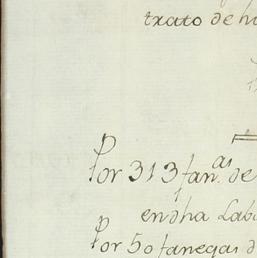 trato de hi
Por 313 fan.as de
en dha Lab
Por 50 fanegas d